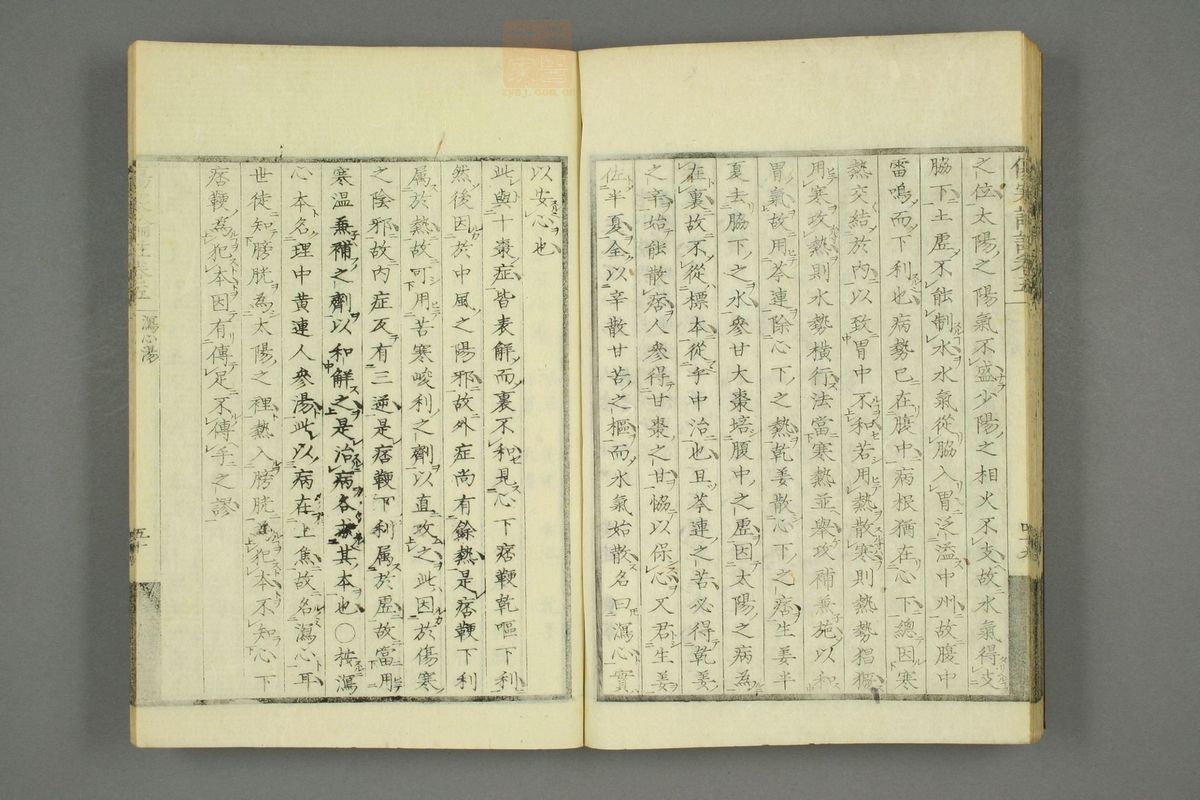 之位太陽之陽氣不盛少陽之相火不支故水氣得支
脇下土虛不能制水水氣從脇入胃泛溢中州故腹中
雷鳴而下利也病勢已在腹中病根猶在心下總因寒
熱交結於內以致胃中不和若用熱散寒則熱勢猖獗
用寒攻熱則水勢橫行法當寒熱並舉攻補兼施以和
胃氣故用芩連除心下之熱乾姜散心下之痞生姜半
夏去脇下之水參甘大棗培腹中之虛因太陽之病為
在裏故不從標本從乎中治也且芩連之苦必得乾姜
之辛始能散痞人參得甘棗之甘恊以保心又君生姜
佐半夏全以辛散甘苦之樞而水氣始散名曰瀉心實
以安心也
此與十棗症皆表解而裏不和見心下痞鞕乾嘔下利
然後因於中風之陽邪故外症尚有餘熱是痞鞕下利
属於熱故可用苦寒峻利之劑以直攻之此因於傷寒
之陰邪故內症反有三逆是痞鞕下利属於虛故當用
寒温兼補之劑以和解之是治病各求其本也○按瀉
心本名理中黄連人參湯此以病在上焦故名瀉心耳
世徒知膀胱為太陽之裡熱入膀胱為犯本不知心下
痞鞕為犯本因有傳足不傳手之謬
瀉心湯
五十